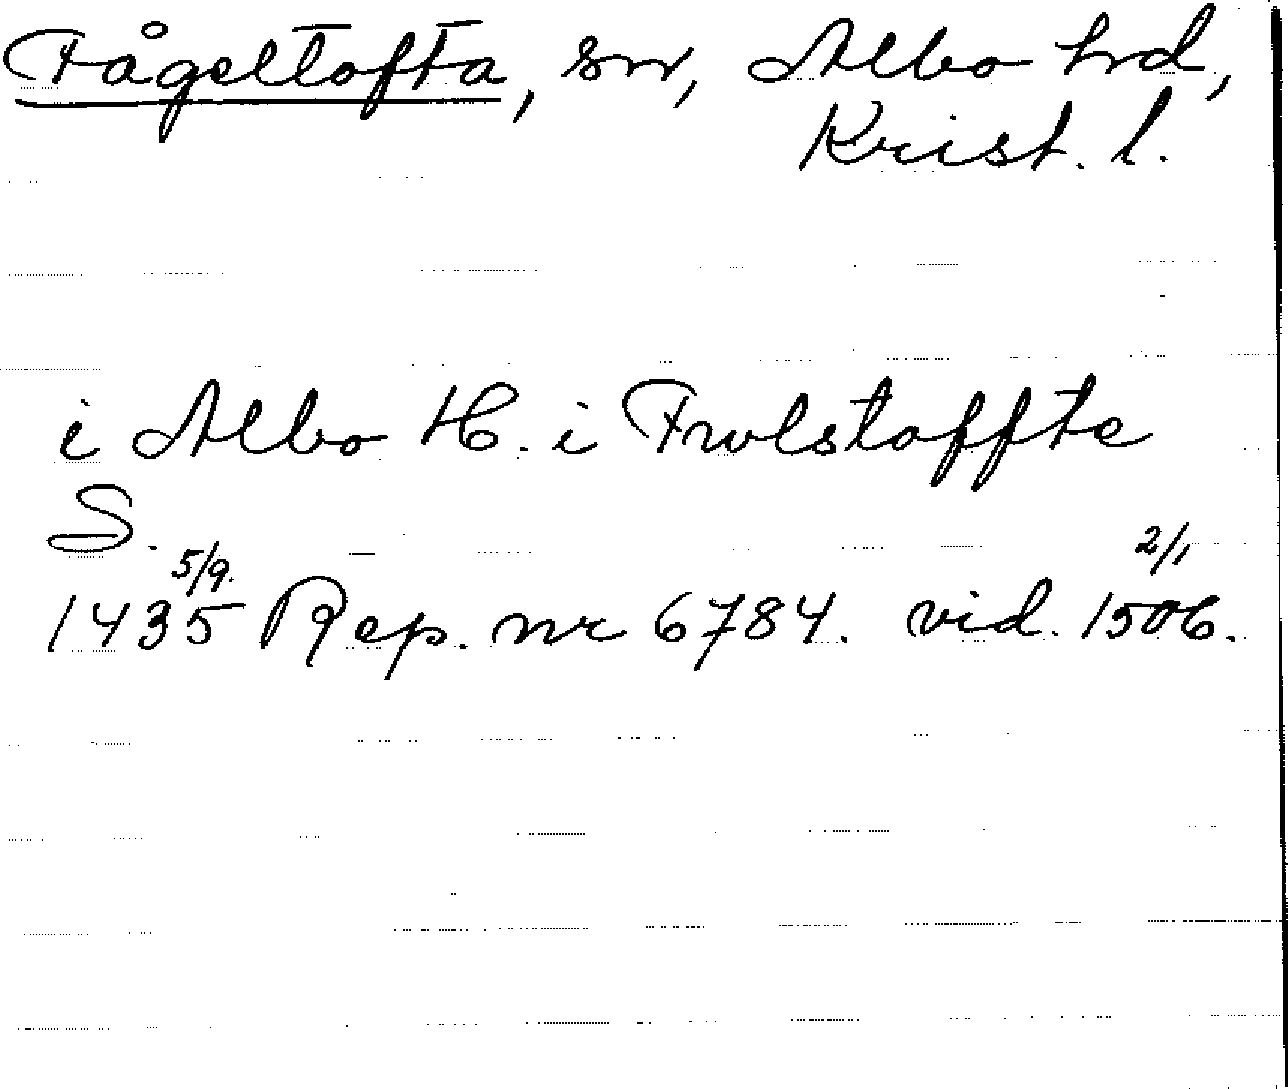 Fågeltofta, sn, Albo hrd,
Krist. l.
i Albo H. i Fwlstoffte
S.
5/9 2/1
1435 Rep. nr 6784. vid. 1506.